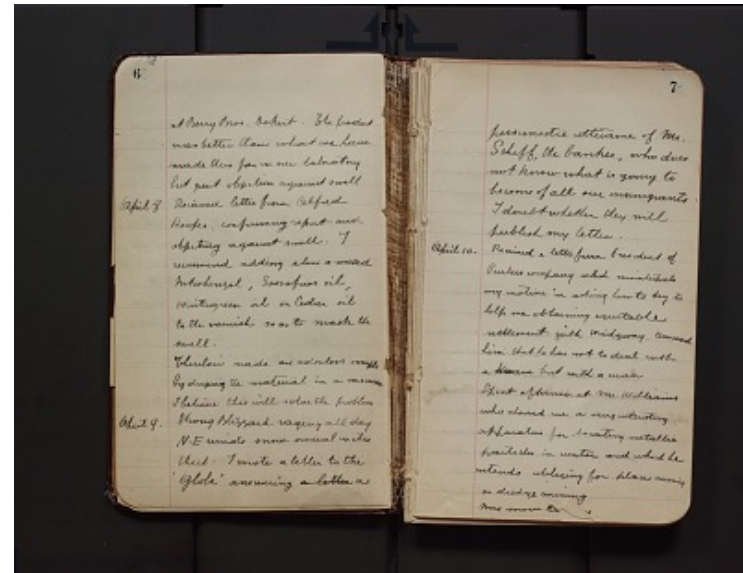 6
at Berry Bros. Detroit. The product
was better than what we have
made thus far in our laboratory
but great objection against smell
April 8 Received letter from Alfred
confirming report and
objecting against smell. I
recommend adding also a mixed
Nitrobenzol, Sassafras oil,
Wintergreen oil or Cedar oil
to the varnish so as to mask the
smell.
Thurlow made an odorless
by drying the material in a
I believe this will solve the problem
April 9. Strong Blizzard raging all day
N.E. winds snow several inches
thick. I wrote a letter to the
"Globe" answering a letter a
7
pessimistic utterance of Mr.
Schiff, the banker, who does
not know what is going to
become of all our immigrants.
I doubt whether they will
publish my letter.
April 10. Received a letter from President of
company which
my motive in asking him to try to
help me obtaining equitable
settlement with Ridgway. Answered
him that he has not to deal with
a but with a
Spent afternoon at Mr. Williams
who showed me a very interesting
apparatus for locating metallic
particles in water and which he
intends utilizing for placer mining
or dredge mining